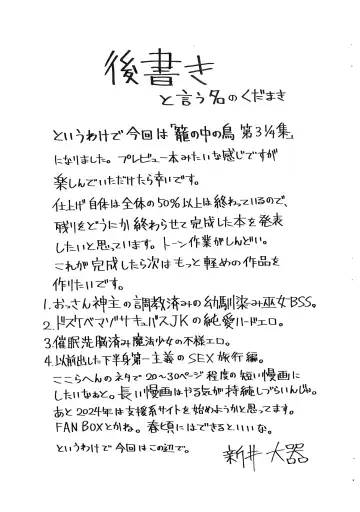 後書き
と言う名のくだまき
というわけで今回は「籠の中の鳥 第3 1/4集」
になりました。プレビュー本みたいな感じですが
楽しんでいただけたら幸いです。
仕上げ自体は全体の50%以上は終わっているので、
残りをどうにか終わらせて完成した本を発表
したいと思っています。トーン作業がしんどい。
これが完成したら次はもっと軽めの作品を
作りたいです。
1.おっさん神主の調教済みの幼馴染み巫女BSS。
2.ドスケベマゾサキュバスJKの純愛ハードエロ。
3.催眠洗脳済み魔法少女の不様エロ。
4.以前出した下半身第一主義のSEX旅行編。
ここらへんのネタで20~30ページ程度の短い漫画に
したいなぁと。長い漫画はやる気が持続しづらいんじゃ。
あと2024年は支援系サイトを始めようかと思ってます。
FANBOXとかね。春頃にはできるといいな。
というわけで今回はこの辺で。
新井 大器